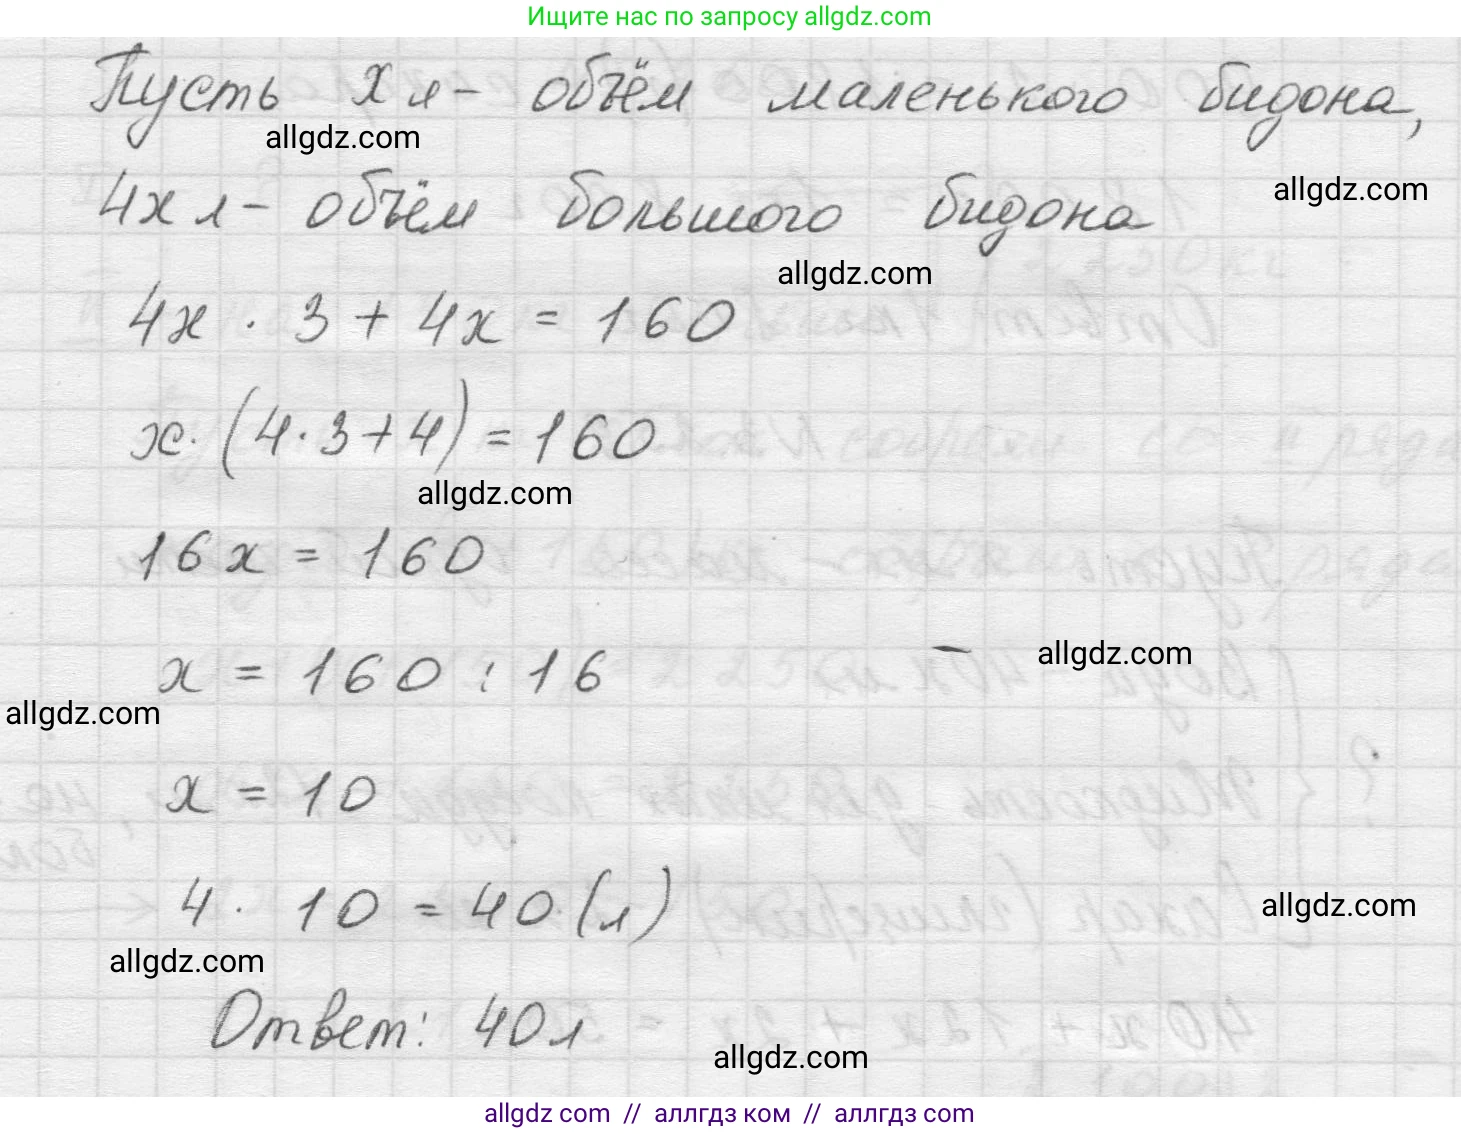 Ищите нас по запросу allgdz.com
Пусть x л - объём маленького бидона,
allgdz.com
allgdz.com
4x л - объём большого бидона
allgdz.com
4x · 3 + 4x = 160
x · (4 · 3 + 4) = 160
allgdz.com
16x = 160
x = 160 : 16
allgdz.com
allgdz.com
x = 10
4 · 10 = 40 (л)
allgdz.com
allgdz.com
Ответ: 40 л
allgdz.com
allgdz com // аллгдз ком // аллгдз com